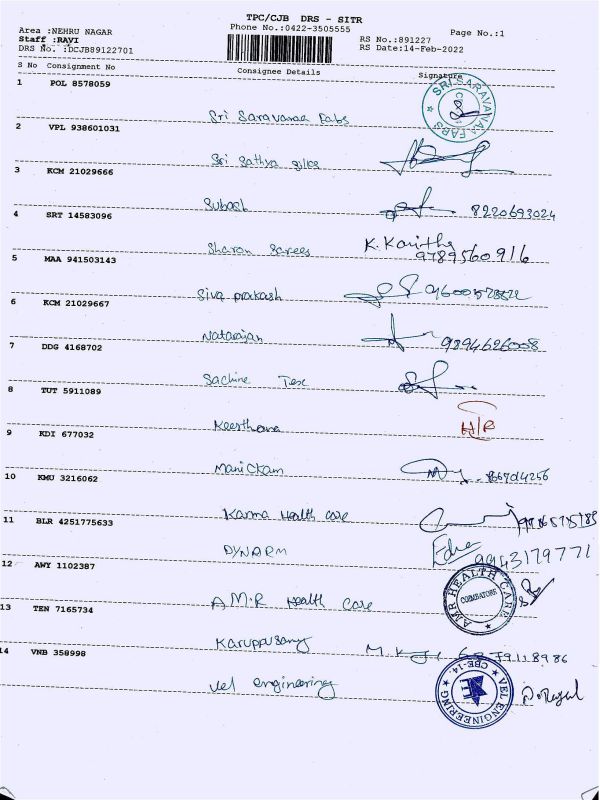 TPC/CJB DRS - SITR
Phone No.:0422-3505555
Area :NEHRU NAGAR
Staff :RAVI
DRS No. :DCJB89122701
RS No.:891227
RS Date:14-Feb-2022
Page No.:1
S No Consignment No Consignee Details Signature
1 POL 8578059
Sri Saravanaa Fabs
SRI SARAVANAA FABS
2 VPL 938601031
Sri Sathya silks
3 KCM 21029666
Subash 8220693024
4 SRT 14583096
Sharon Sarees K. Kavitha
9789560916
5 MAA 941503143
Siva prakash
6 KCM 21029667
Natarajan 9894626008
7 DDG 4168702
Sachine Tex
8 TUT 5911089
Keerthana H/R
9 KDI 677032
Manickam
10 KMU 3216062
Karma Health care
11 BLR 4251775633
DYNARM 9943179771
12 AWY 1102387
A.M.R Health Care
AMR HEALTH CARE
COIMBATORE
13 TEN 7165734
Karuppusamy
14 VNB 358998
Vel engineering
VEL ENGINEERING
CBE-14.